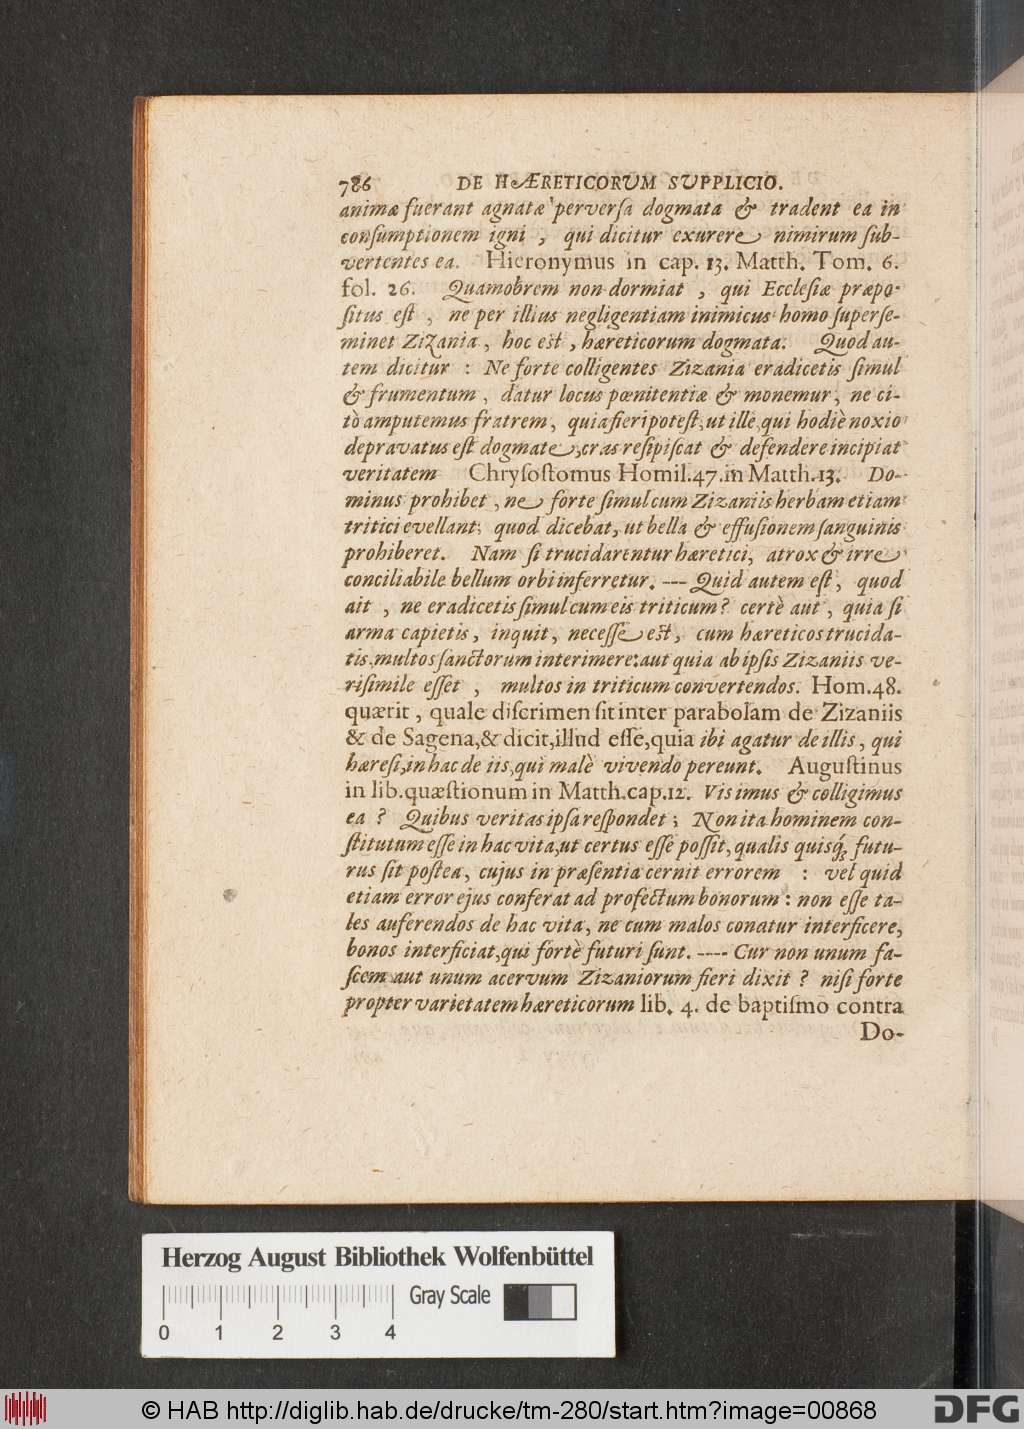 786 DE HÆRETICORUM SUPPLICIO.
animæ fuerant agnatæ perversa dogmata & tradent ea in
consumptionem igni , qui dicitur exurere nimirum sub-
vertentes ea. Hieronymus in cap. 13. Matth. Tom. 6.
fol. 26. Quamobrem non dormiat , qui Ecclesiæ præpo-
situs est , ne per illius negligentiam inimicus homo superse-
minet Zizania , hoc est , hæreticorum dogmata. Quod au-
tem dicitur : Ne forte colligentes Zizania eradicetis simul
& frumentum , datur locus pœnitentiæ & monemur, ne ci-
tò amputemus fratrem, quia fieri potest, ut ille, qui hodiè noxio
depravatus est dogmate, cras resipiscat & defendere incipiat
veritatem Chrysostomus Homil.47.in Matth.13. Do-
minus prohibet , ne forte simul cum Zizaniis herbam etiam
tritici evellant; quod dicebat, ut bella & effusionem sanguinis
prohiberet. Nam si trucidarentur hæretici, atrox & irre
conciliabile bellum orbi inferretur. --- Quid autem est, quod
ait , ne eradicetis simul cum eis triticum? certè aut , quia si
arma capietis, inquit, necesse est, cum hæreticos trucida-
tis, multos sanctorum interimere: aut quia ab ipsis Zizaniis ve-
risimile esset , multos in triticum convertendos. Hom.48.
quærit , quale discrimen sit inter parabolam de Zizaniis
& de Sagena,& dicit,illud esse,quia ibi agatur de illis, qui
hæresi, in hac de iis, qui malè vivendo pereunt. Augustinus
in lib.quæstionum in Matth.cap.12. Vis imus & colligimus
ea ? Quibus veritas ipsa respondet ; Non ita hominem con-
stitutum esse in hac vita, ut certus esse possit, qualis quisq; futu-
rus sit postea, cujus in præsentia cernit errorem : vel quid
etiam error ejus conferat ad profectum bonorum : non esse ta-
les auferendos de hac vita, ne cum malos conatur interficere,
bonos interficiat, qui fortè futuri sunt. ---- Cur non unum fa-
scem aut unum acervum Zizaniorum fieri dixit ? nisi forte
propter varietatem hæreticorum lib. 4. de baptismo contra
Do-
Herzog August Bibliothek Wolfenbüttel
Gray Scale
0 1 2 3 4
© HAB http://diglib.hab.de/drucke/tm-280/start.htm?image=00868
DFG